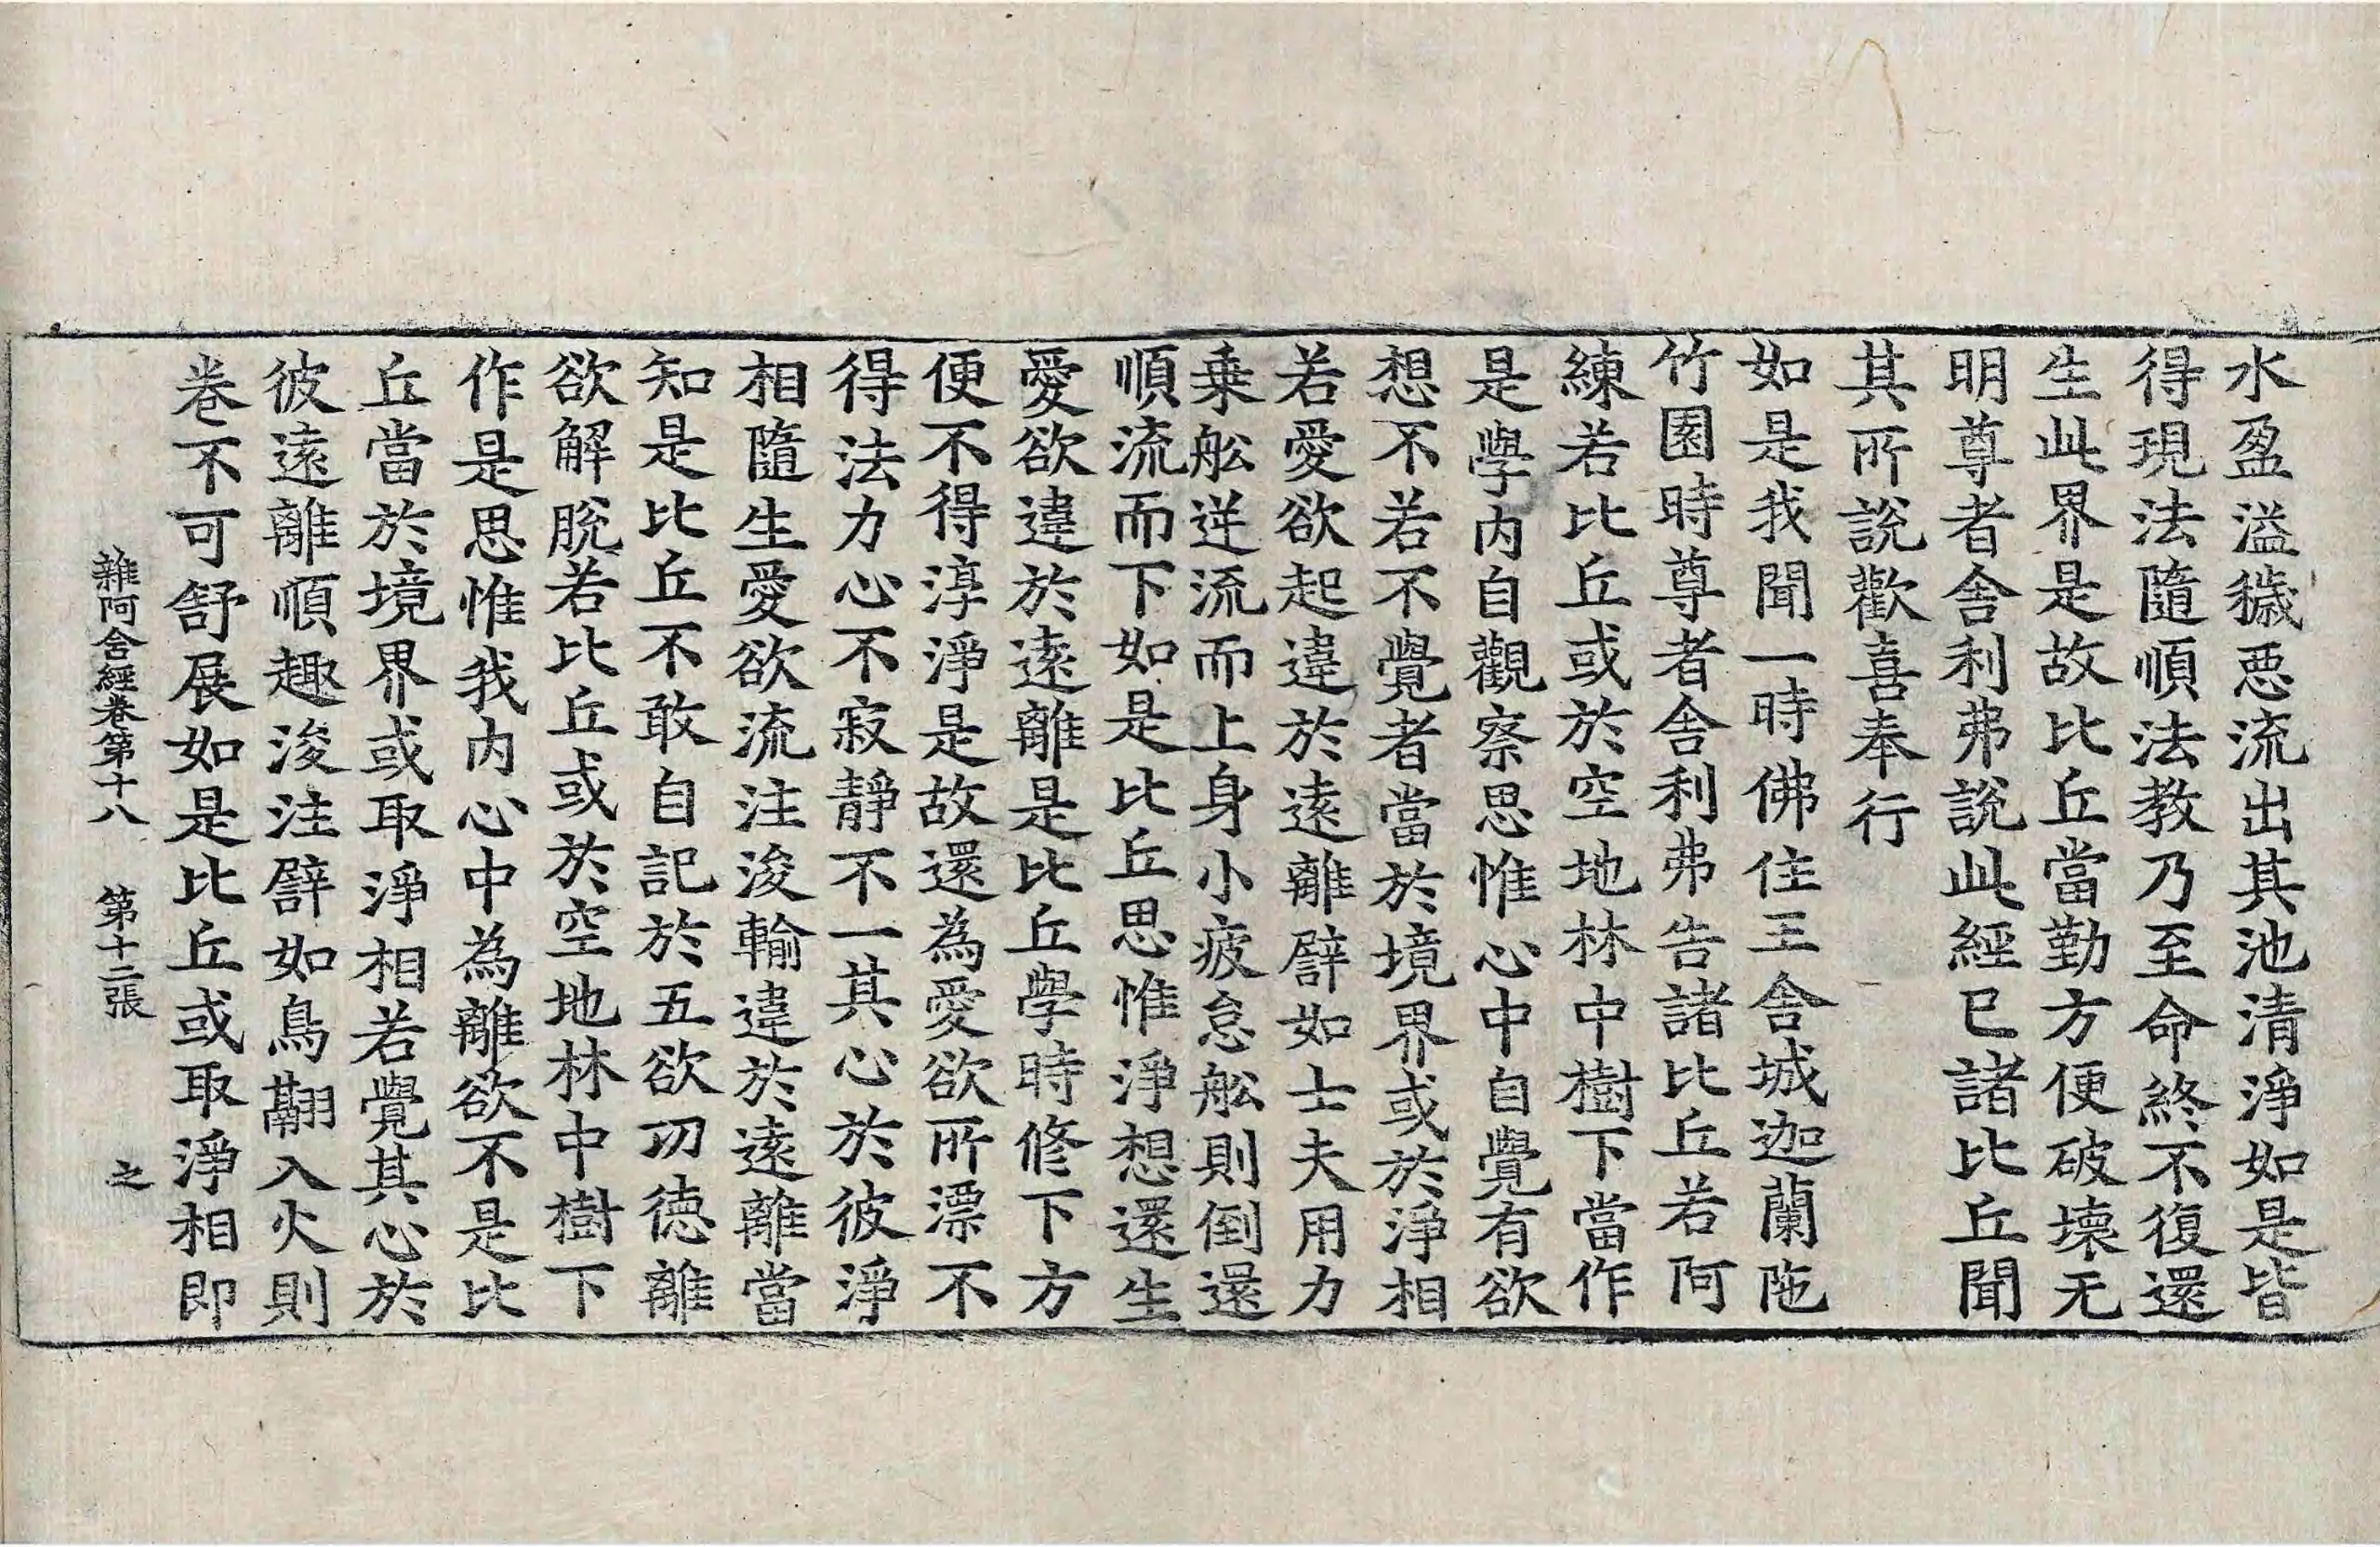 水盈溢穢惡流出其池清淨如是皆
得現法隨順法教乃至命終不復還
生此界是故比丘當勤方便破壞无
明尊者舍利弗說此經已諸比丘聞
其所說歡喜奉行
如是我聞一時佛住王舍城迦蘭陁
竹園時尊者舍利弗告諸比丘若阿
練若比丘或於空地林中樹下當作
是學內自觀察思惟心中自覺有欲
想不若不覺者當於境界或於淨相
若愛欲起違於遠離譬如士夫用力
乗舩逆流而上身小疲怠舩則倒還
順流而下如是比丘思惟淨想還生
愛欲違於遠離是比丘學時修下方
便不得淳淨是故還為愛欲所漂不
得法力心不寂靜不一其心於彼淨
相隨生愛欲流注浚輸違於遠離當
知是比丘不敢自記於五欲功德離
欲解脫若比丘或於空地林中樹下
作是思惟我內心中為離欲不是比
丘當於境界或取淨相若覺其心於
彼遠離順趣浚注譬如鳥翮入火則
卷不可舒展如是比丘或取淨相即
雜阿含經卷第十八 第十二張 之